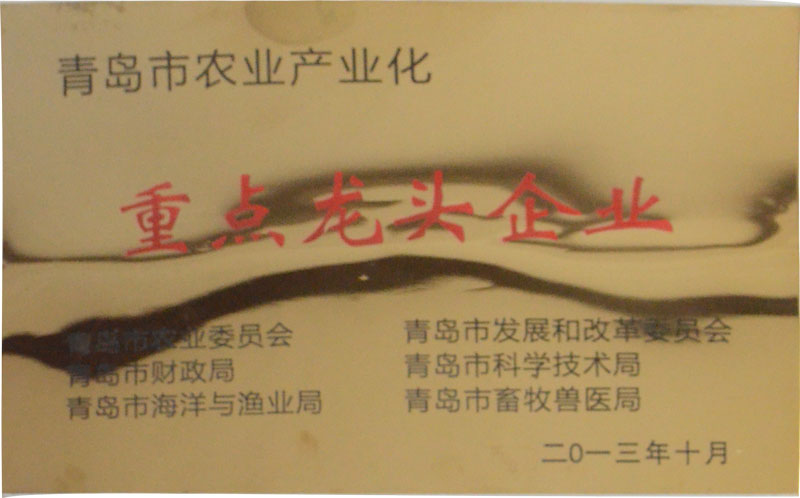 青岛市农业产业化
重点龙头企业
青岛市农业委员会
青岛市发展和改革委员会
青岛市财政局
青岛市科学技术局
青岛市海洋与渔业局
青岛市畜牧兽医局
二0一三年十月